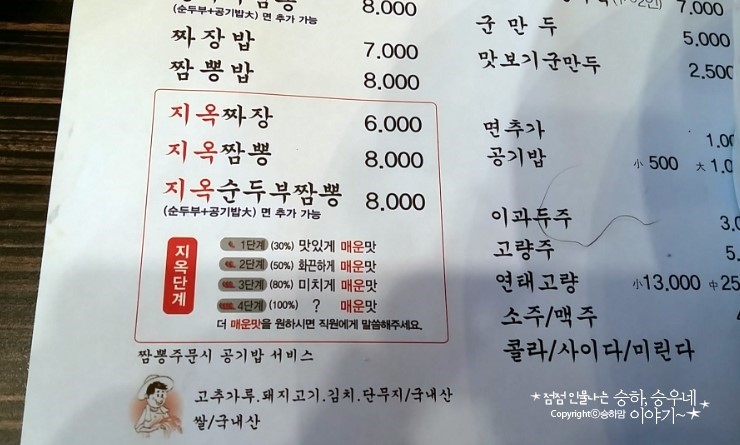 (순두부+공기밥大) 면 추가 가능
8.000
짜장밥 7.000
짬뽕밥 8.000
지옥짜장 6.000
지옥짬뽕 8.000
지옥순두부짬뽕 8.000
(순두부+공기밥大) 면 추가 가능
지옥단계
1단계 (30%) 맛있게 매운맛
2단계 (50%) 화끈하게 매운맛
3단계 (80%) 미치게 매운맛
4단계 (100%) ? 매운맛
더 매운맛을 원하시면 직원에게 말씀해주세요.
짬뽕주문시 공기밥 서비스
고추가루.돼지고기.김치.단무지/국내산
쌀/국내산
7.000
군만두 5.000
맛보기군만두 2.500
면추가
공기밥 小 500 大
이과두주
고량주
연태고량 小13.000 中
소주/맥주
콜라/사이다/미린다
점점 인물나는 승하, 승우네
Copyrightⓒ승하맘 이야기~